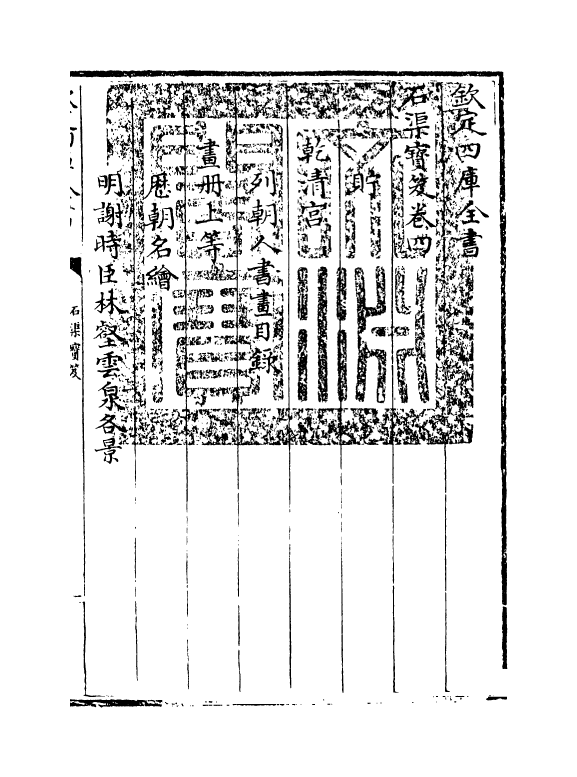 欽定四庫全書
石渠寶笈卷四
貯
乾清宮
列朝人書畫目錄
畫冊上等
歷朝名繪
明謝時臣林壑雲泉各景
石渠寶笈